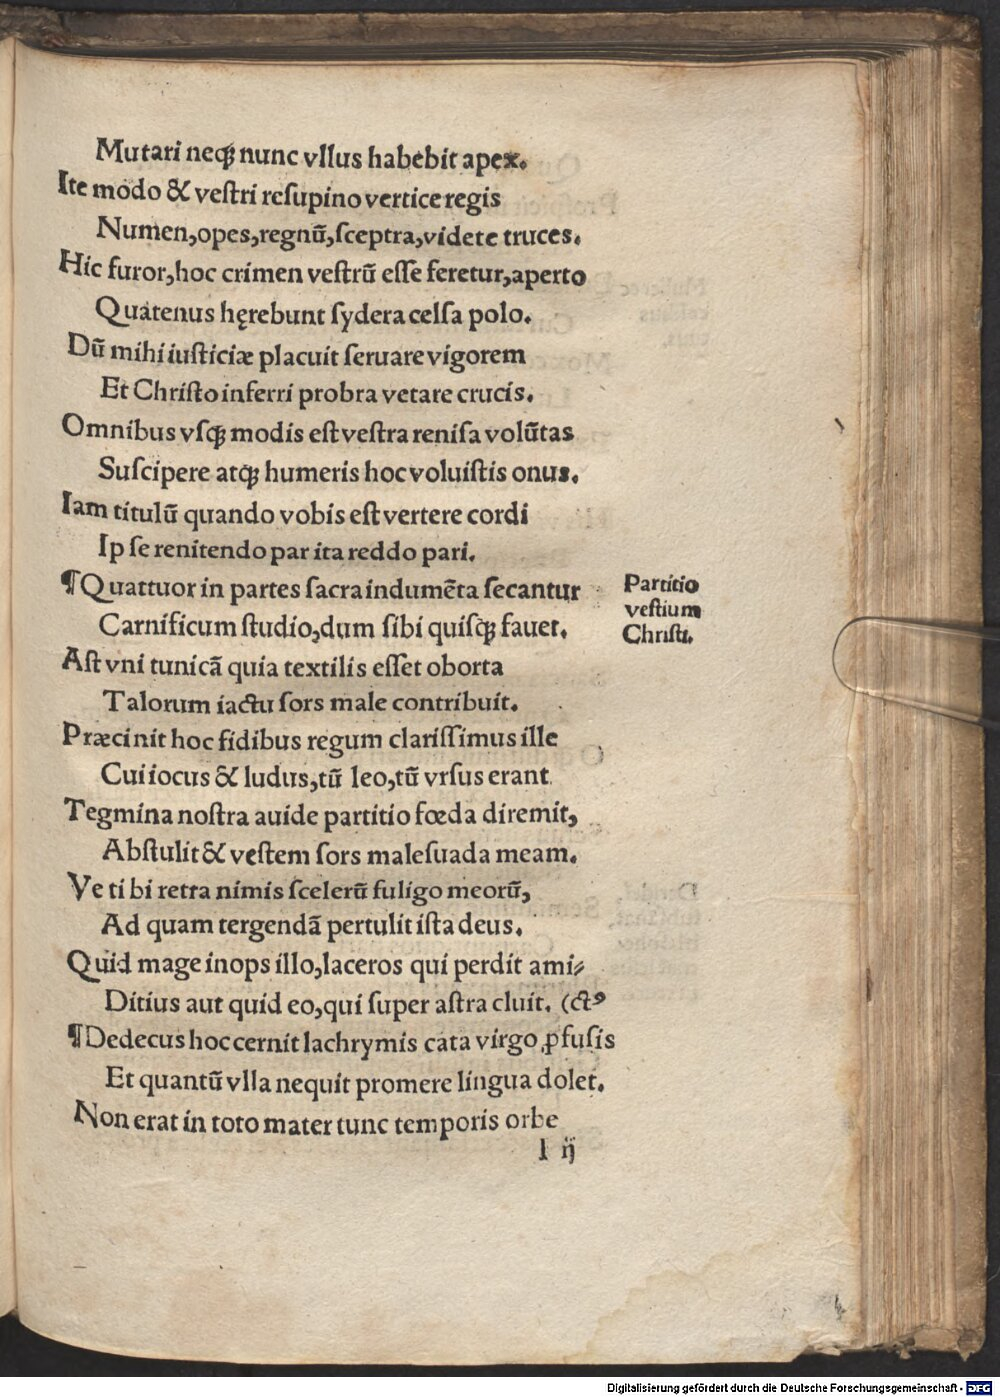 Mutari neqꝫ nunc vllus habebit apex.
Ite modo & veſtri reſupino vertice regis
Numen,opes,regnū,ſceptra,videte truces.
Hic furor,hoc crimen veſtrū eſſe feretur,aperto
Quatenus hęrebunt ſydera celſa polo.
Dū mihi iuſticiæ placuit ſeruare vigorem
Et Chriſto inferri probra vetare crucis.
Omnibus vſqꝫ modis eſt veſtra reniſa volūtas
Suſcipere atqꝫ humeris hoc voluiſtis onus.
Iam titulū quando vobis eſt vertere cordi
Ip ſe renitendo par ita reddo pari.
¶Quattuor in partes ſacra indumēta ſecantur
Carnificum ſtudio,dum ſibi quiſqꝫ fauet.
Aſt vni tunicā quia textilis eſſet oborta
Talorum iactu ſors male contribuit.
Præcinit hoc fidibus regum clariſſimus ille
Cui iocus & ludus,tū leo,tū vrſus erant
Tegmina noſtra auide partitio fœda diremit,
Abſtulit & veſtem ſors maleſuada meam.
Ve ti bi retra nimis ſcelerū fuligo meorū,
Ad quam tergendā pertulit iſta deus.
Quid mage inops illo,laceros qui perdit ami⸗
Ditius aut quid eo,qui ſuper aſtra cluit. (ctꝰ
¶Dedecus hoc cernit lachrymis cata virgo ꝓfuſis
Et quantū vlla nequit promere lingua dolet.
Non erat in toto mater tunc temporis orbe
I ij
Partitio
veſtium
Chriſti.
Digitalisierung gefördert durch die Deutsche Forschungsgemeinschaft - DFG